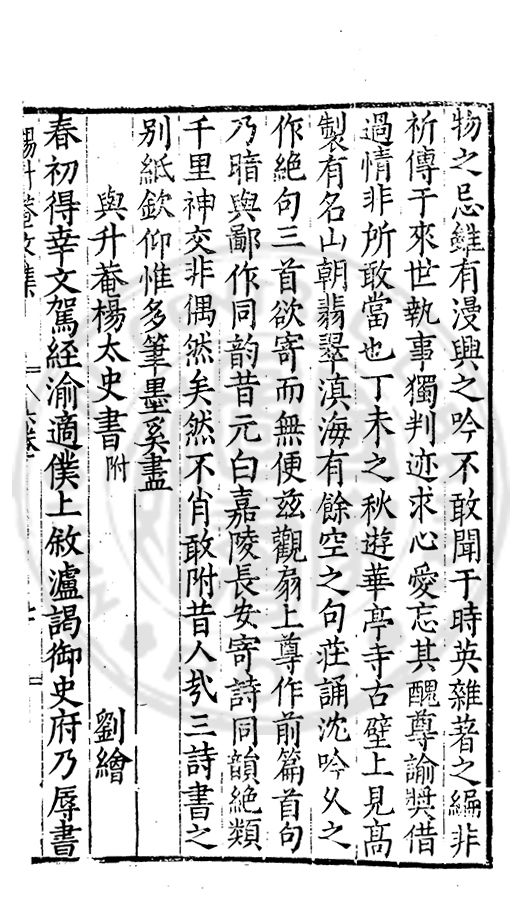 物之忌雖有漫興之吟不敢聞于時英雜著之編非
祈傳于來世執事獨判迹求心愛忘其醜尊諭奬借
過情非所敢當也丁未之秋遊華亭寺古壁上見髙
製有名山朝翡翠滇海有餘空之句莊誦沈吟乆之
作絶句三首欲寄而無便茲觀扇上尊作前篇首句
乃暗與鄙作同韵昔元白嘉陵長安寄詩同韻絶類
千里神交非偶然矣然不肖敢附昔人㢤三詩書之
别紙欽仰惟多筆墨奚盡
與升菴楊太史書附 劉繪
春初得幸文駕經渝適僕上敘瀘謁御史府乃辱書